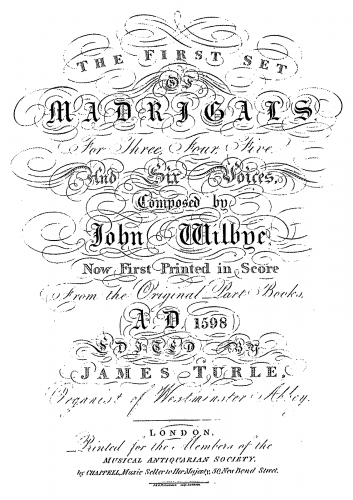 THE FIRST SET
OF
MADRIGALS
For Three, Four, Five
And Six Voices,
Composed by
John Wilbye.
Now First Printed in Score
From the Original Part Books,
A.D. 1598
EDITED BY
JAMES TURLE,
Organist of Westminster Abbey.
LONDON,
Printed for the Members of the
MUSICAL ANTIQUARIAN SOCIETY,
by CHAPPELL, Music Seller to Her Majesty, 50, New Bond Street.